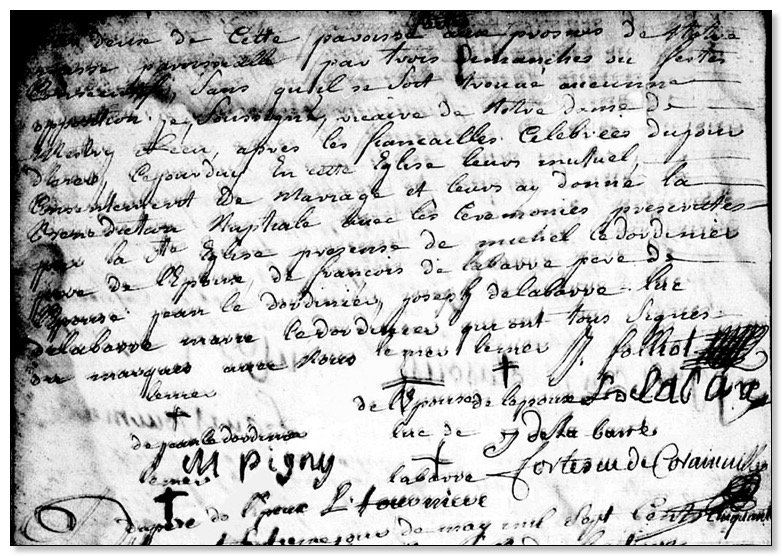 deux de Cette paroisse aux prosnes de Notre
messe paroissialle par trois dimanches ou festes
Consecutifs, Sans qu'il se soit trouvé aucunne
opposition je, Soussigné, vicaire de Notre dame de
après les fiancailles Celebrées du jour
d'hier, En cette Eglise leurs mutuel,
Consentement De Mariage et leurs ay donné la
Benediction Nuptiale avec les Ceremonies prescrittes
par la Ste Eglise presense de michel ledordinier
pere de l'Epoux, de françois de labarre pere de
l'Epouse jean le dordinier, joseph delabarre luc
delabarre marie ledordinier qui ont tous signés
ou marqués avec Nous le mer le mer J. folliot
le mer de l'Epouse de lepoux F. DelabAre
de jean le dordinier luc de J dela barre
le mer M Pigny labarre
du pere de l'Epoux L. fourniere
jour de may mil sept Cents